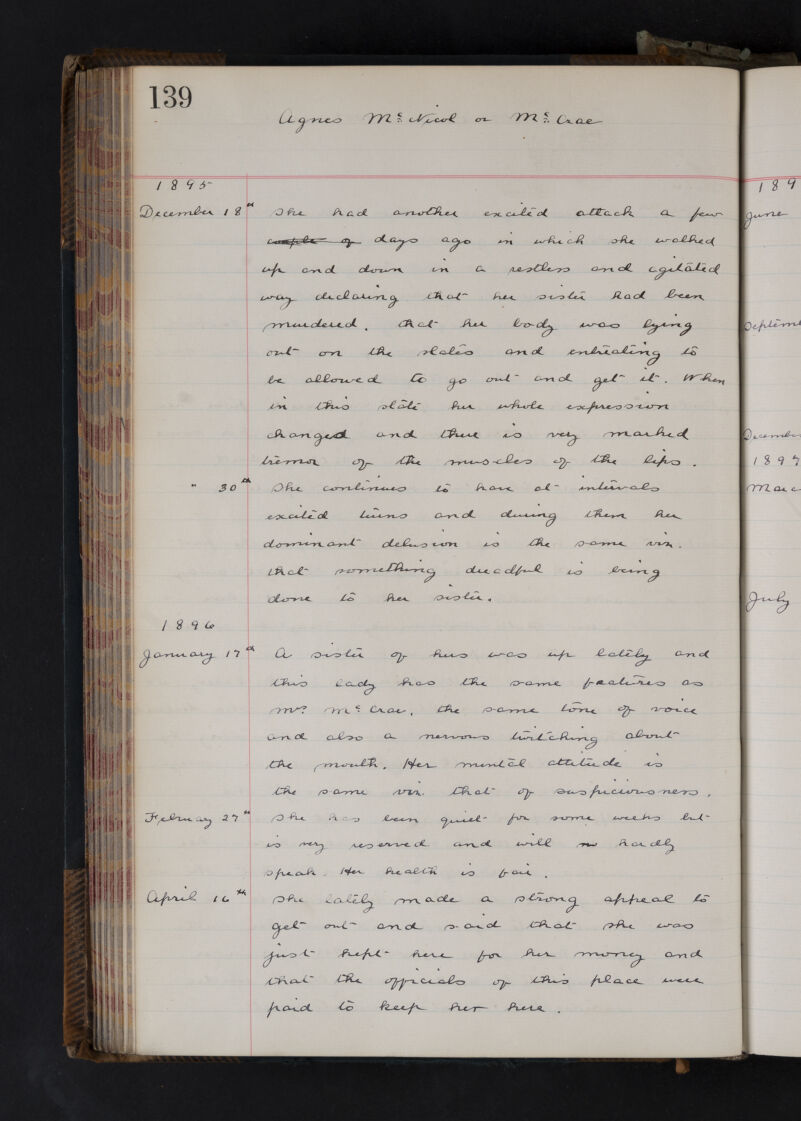 139
Agnes McNicol or McCrae
1895
December 18th She had another excited attack a few
couple of days ago in which she walked
up and down in a restless and agitated
way declaring that her sister had been
murdered, that her body was lying
out on the slates and entreating to
be allowed to go out and get it. When
in this state her whole expression
changed and there is very marked
tremor of the muscles of the lips.
" 30th She continues to have at intervals
excited turns and during them her
dominant delusion is the same viz.
that something dreadful is being
done to her sister.
1896
January 17th A sister of hers was up lately and
this lady has the same features as
Mrs McCrae, the same tone of voice
and also a nervous twitching about
the mouth. Her mental attitude is
the same viz. that of suspiciousness.
February 27th She has been quiet for some weeks but
is very reserved and will hardly
speak. Her health is fair.
April 16th She lately made a strong appeal to
get out and said that she was
just kept here for her money and
that the officials of this place were
paid to keep her here.
189
June
Septem
December
1897
Marc
July